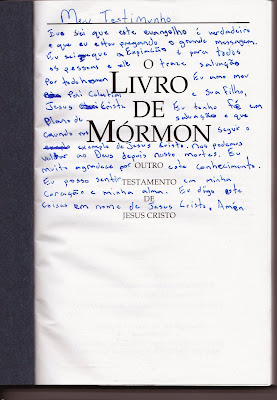 Meu Testimunho
Eu sei que este evangelho é verdadeiro
e que eu estou pregando o grande mensagem.
Eu sei que a Expiação é para todos
os pessoas e ele traze salvação
O
por todo homem. Eu amo meu
LIVRO
Pai Celestim e sua filho,
Jesus Cristo. Eu tenho fé em
DE
Plano de salvação e que
MÓRMON
quando nos segue o
exemplo de Jesus Cristo. Nos podemos
voltar ao Deus depois nusso mortes. Eu
muito agradese por este conhecimento.
OUTRO
Eu posso sentir em minha
TESTAMENTO
coração e minha alma. Eu digo este
DE
coisas em nome de Jesus Cristo, Amén
JESUS CRISTO